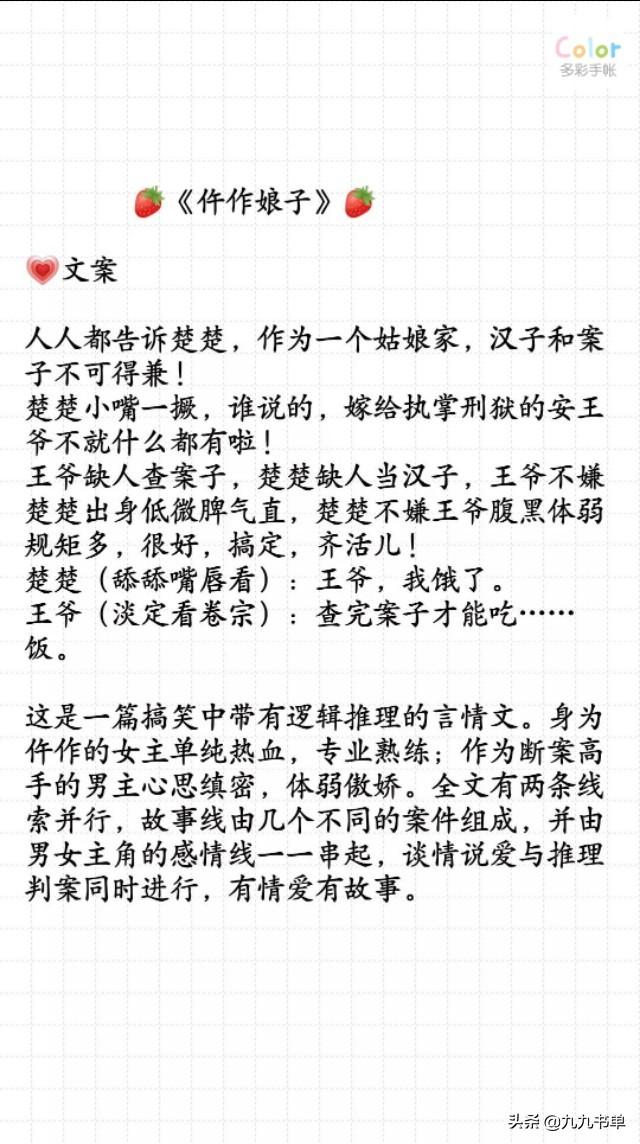 Color
多彩手帐
《仵作娘子》
文案
人人都告诉楚楚，作为一个姑娘家，汉子和案
子不可得兼！
楚楚小嘴一撅，谁说的，嫁给执掌刑狱的安王
爷不就什么都有啦！
王爷缺人查案子，楚楚缺人当汉子，王爷不嫌
楚楚出身低微脾气直，楚楚不嫌王爷腹黑体弱
规矩多，很好，搞定，齐活儿！
楚楚（舔舔嘴唇看）：王爷，我饿了。
王爷（淡定看卷宗）：查完案子才能吃……
饭。
这是一篇搞笑中带有逻辑推理的言情文。身为
仵作的女主单纯热血，专业熟练；作为断案高
手的男主心思缜密，体弱傲娇。全文有两条线
索并行，故事线由几个不同的案件组成，并由
男女主角的感情线一一串起，谈情说爱与推理
判案同时进行，有情爱有故事。
头条 @九九书单